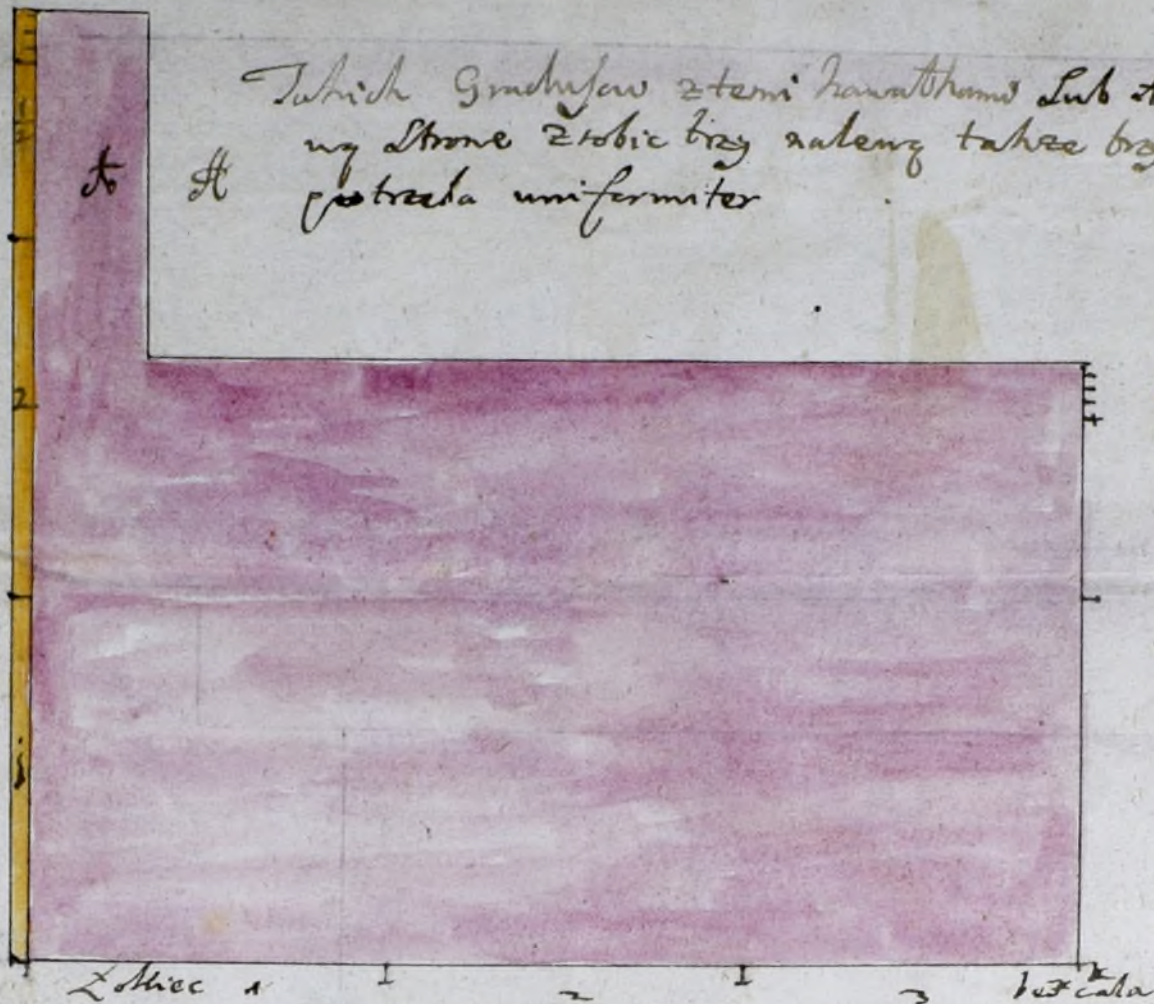 Takich Gradusow z temi kawałkami Lub z
ną Strone Zrobic trzy na lewą takze trzy
A A potrzeba uniformiter
2
1
Łokiec 1 2 3 bez cala